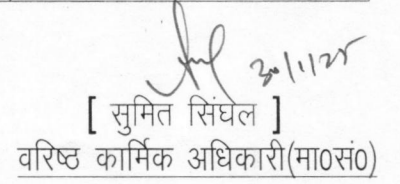 30/1/25
[ सुमित सिंघल ]
वरिष्ठ कार्मिक अधिकारी(मा0सं0)